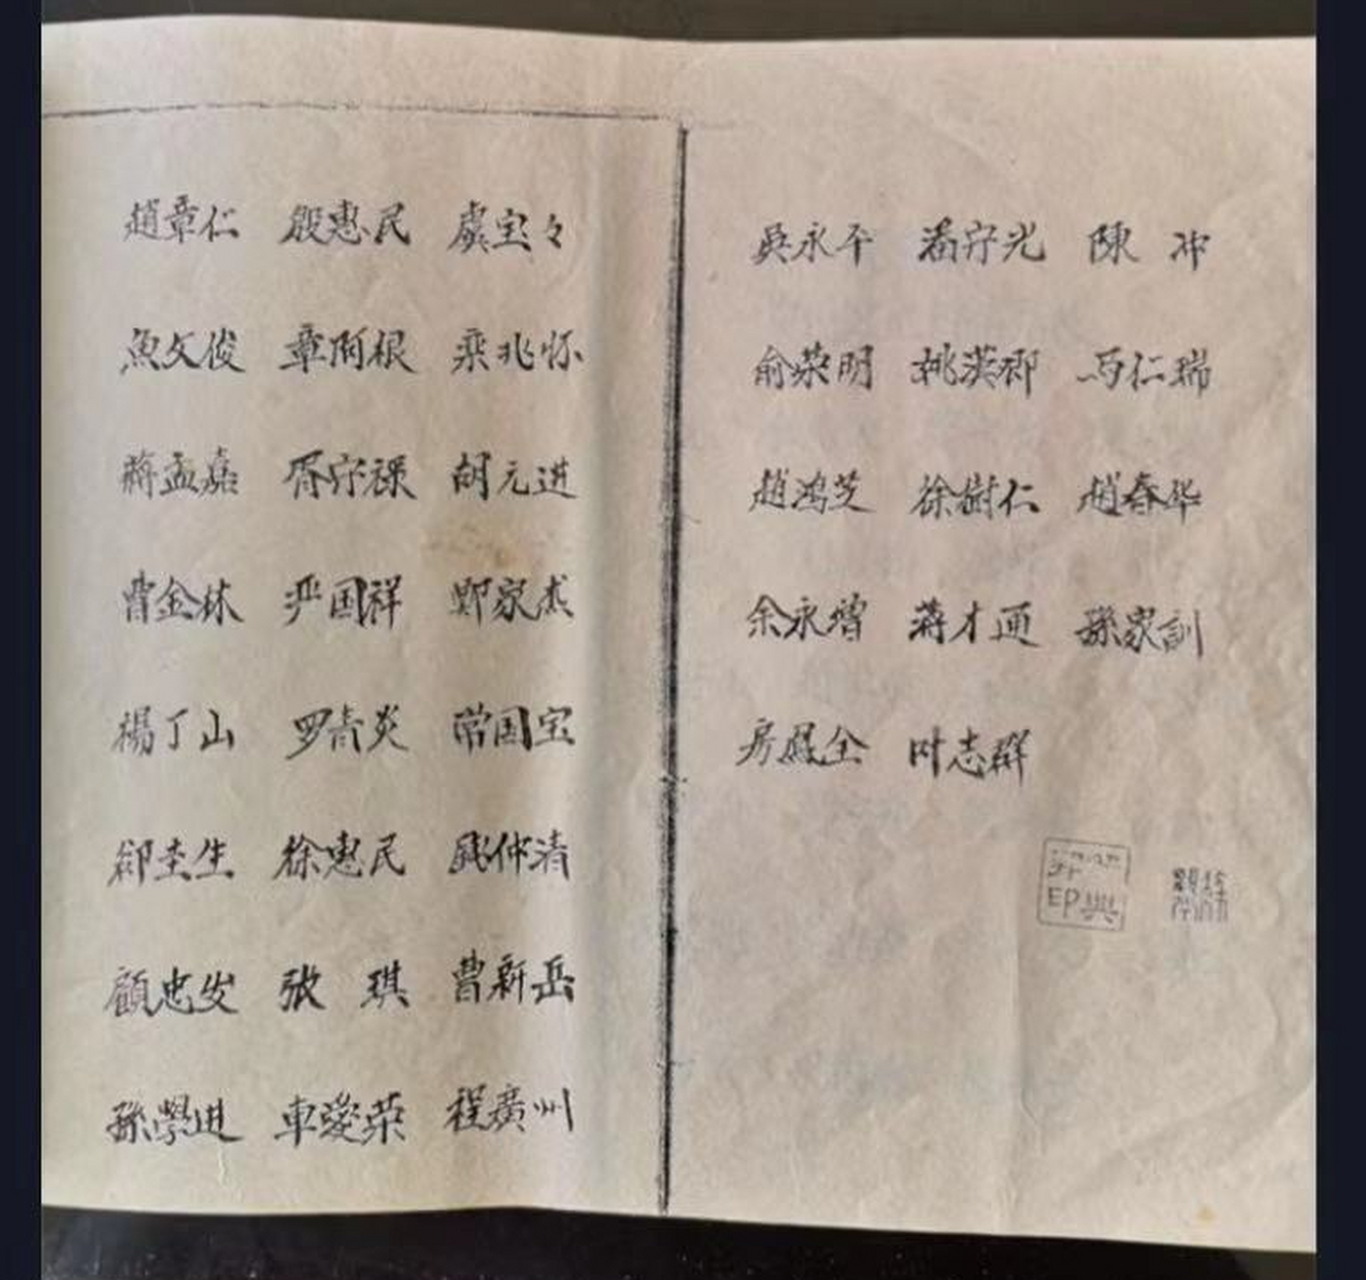 趙章仁 殷惠民 虞宝々
魚文俊 章阿根 乘兆怀
蔣孟嘉 胥守禄 胡元进
曹金林 严国祥 鄭家杰
楊丁山 罗青炎 常国宝
徐惠民 仲清
顧忠发 张 琪 曹新岳
孫學进 車愛荣 程廣州
吳永平 潘守光 陳 冲
俞荣明 姚漢卿 马仁瑞
趙鸿芝 徐樹仁 趙春华
余永增 蒋才通 孫家訓
房鳳全 叶志群